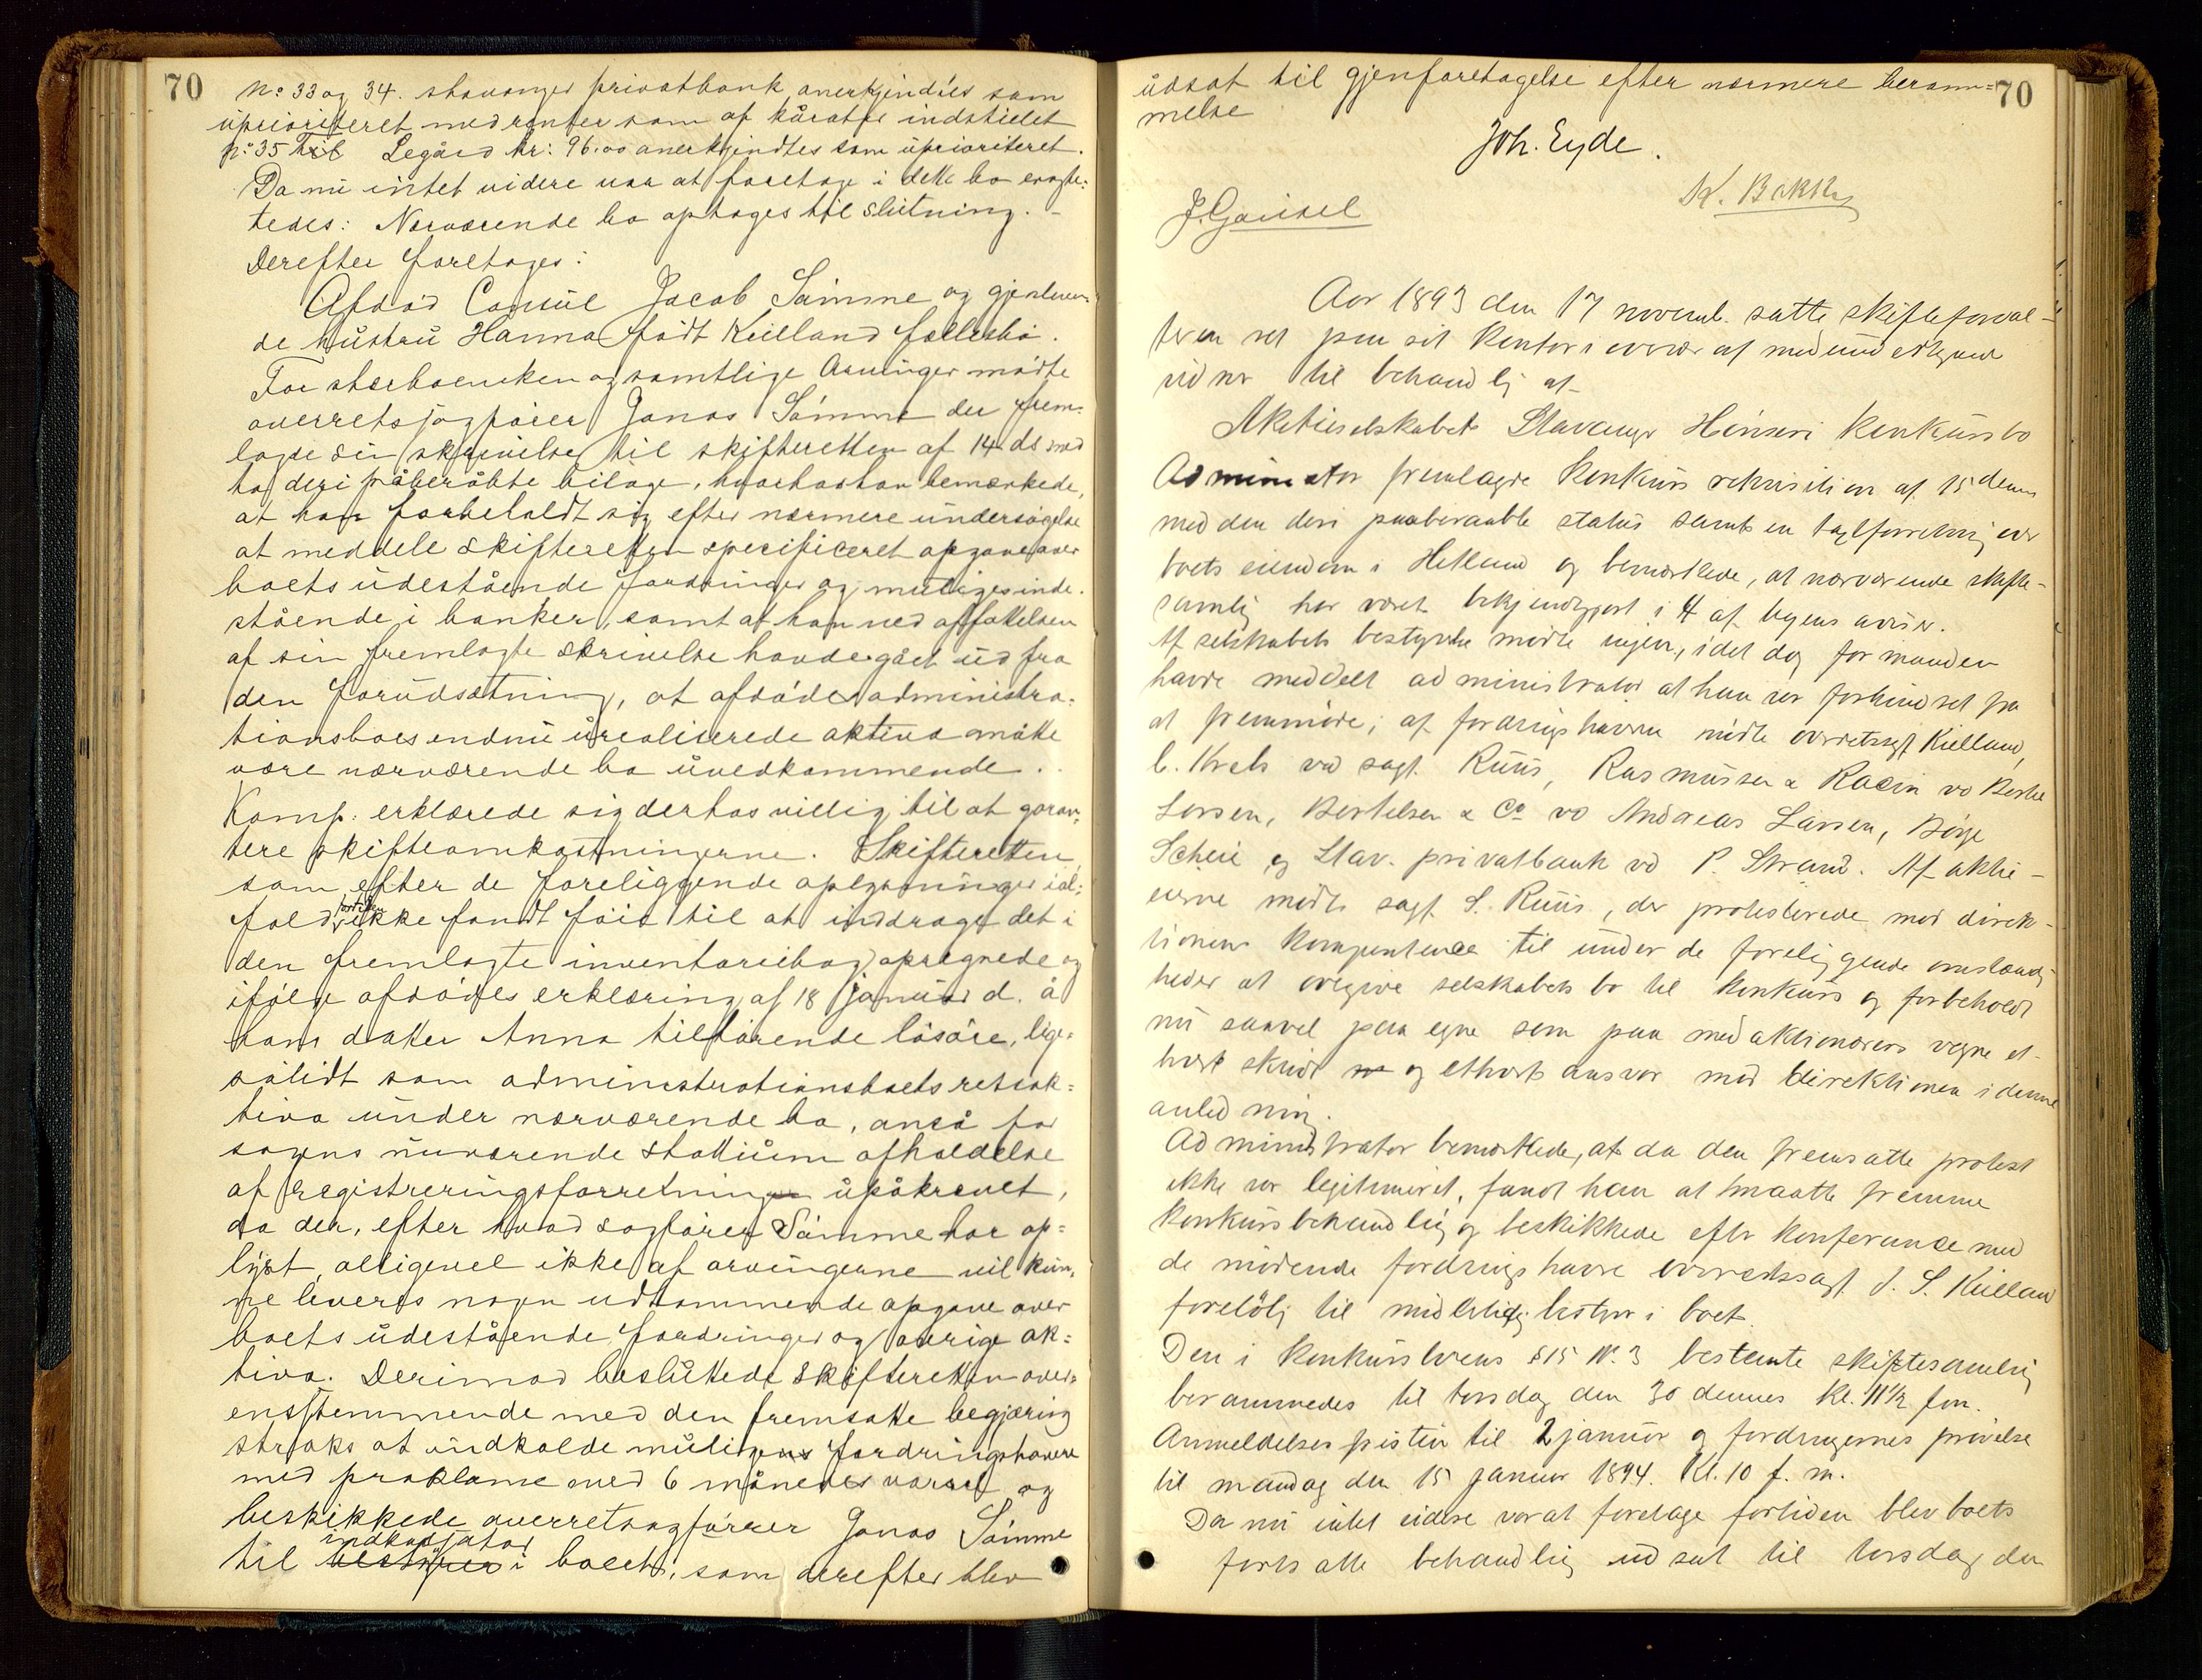 70
No 33 og 34. stavanger privatbank anerkjendtes som
uprioriteret med renter som af kurator indstillet
No 35 Legård kr: 96.00 anerkjendtes som uprioriteret.
Da nu intet videre var at foretage i dette bo eragte-
tedes: Nærværende bo optages til slutning. -
Derefter foretages:
Afdød Consul Jacob Sømme og gjenleven-
de hustru Hanna født Kielland fællesbo.
For stærboenken og samtlige Arvinger mødte
overretssagfører Jonas Sømme der frem-
lagde sin skrivelse til skifteretten af 14 ds med
to deri påberåbte bilage, hvorhos han bemærkede,
at han forbeholdt sig efter nærmere undersøgelse
at meddele skifteretten specificeret opgave over
boets udestående fordringer og muligens inde-
stående i banker, samt at han ved affattelsen
af sin fremlagte skrivelse havde gået ud fra
den forudsætning, at afdøde administra-
tionsboes endnu urealiserede aktiva måtte
være nærværende bo uvedkommende.
Komp. erklærede sig derhos villig til at garan-
tere skifteomkostningerne. Skifteretten,
som efter de foreliggende oplysninger ial-
fald fortiden ikke fandt føie til at inddrage det i
den fremlagte inventariebog opregnede og
ifølge afdødes erklæring af 18 januar d. å
hans datter Anna tilhørende løsøre, lige-
sålidt som administrationsboets restak-
tiva under nærværende bo, anså for
sagens nuværende stadium afholdelse
af registreringsforretning upåkrævet,
da der, efter hvad sagfører Sømme har op-
lyst, alligevel ikke af arvingerne vil kun-
ne leveres nogen udtømmende opgave over
boets udestående fordringer og øvrige ak-
tiva. Derimod besluttede Skifteretten over-
ensstemmende med den fremsatte begjæring
straks at indkalde mulige fordringshavere
med proklama med 6 måneders varsel og
beskikkede overretssagfører Jonas Sømme
til inkassator i boet, som derefter blev
70
udsat til gjenforetagelse efter nærmere beram-
melse
Joh. Eyde.
K. Bakke
J. Gausel
Aar 1893 den 17 novemb. satte skifteforval-
teren ret paa sit kontor i overvær af medundertegnede
vidner til behandlig af
Aktieselskabet Stavanger Hinseri Konkursbo
Adminstor fremlagde konkurs rekvisition af 15 dennes
med den deri paaberaabte status samt en taxtforretnig over
boets eiendom i Hetland og bemærkede, at nærværende skifte-
samlig har været bekjendtgjort i 4 af byens aviser.
Af selskabets bestyrelse mødte ingen, idet dog formanden
havde meddelt administrator at han var forhindret fra
at fremmøde; af fordringshavere mødte overretssagf Kielland,
C. Krebs ved sagf. Ruus, Rasmussen & Racin vd Bertel
Larsen, Bertelsen & Co vd Andreas Larsen, Børge
Scheie og Stav. privatbank vd P. Strand. Af aktie-
eierne mødte sagf. S. Ruus, der protesterede mod direk-
tionens kompentence til under de foreliggende omstændig-
heder at overgive selskabets bo til konkurs og forbeholdt
nu saavel paa egne som paa medaktionærers vegne et-
hvert skridt og ethvert ansvar mod direktionen i denne
anledning.
Administrator bemærkede, at da den fremsatte protest
ikke var legitimeret, fandt han at maatte fremme
konkursbehandlig og beskikkede efter konferance med
de mødende fordringshavere overretssagf. J. S. Kielland
foreløbig til midlertidig bestyrer i boet.
Den i konkurslovens §15 N. 3 bestemte skiftesamlig
berammedes til torsdag den 30 dennes kl. 11½ fm.
Anmeldelsesfristen til 2 januar og fordringernes prøvelse
til mandag den 15 januar 1894. Kl. 10 f. m.
Da nu intet videre var at foretage fortiden blev boets
fortsatte behandlig udsat til torsdag den